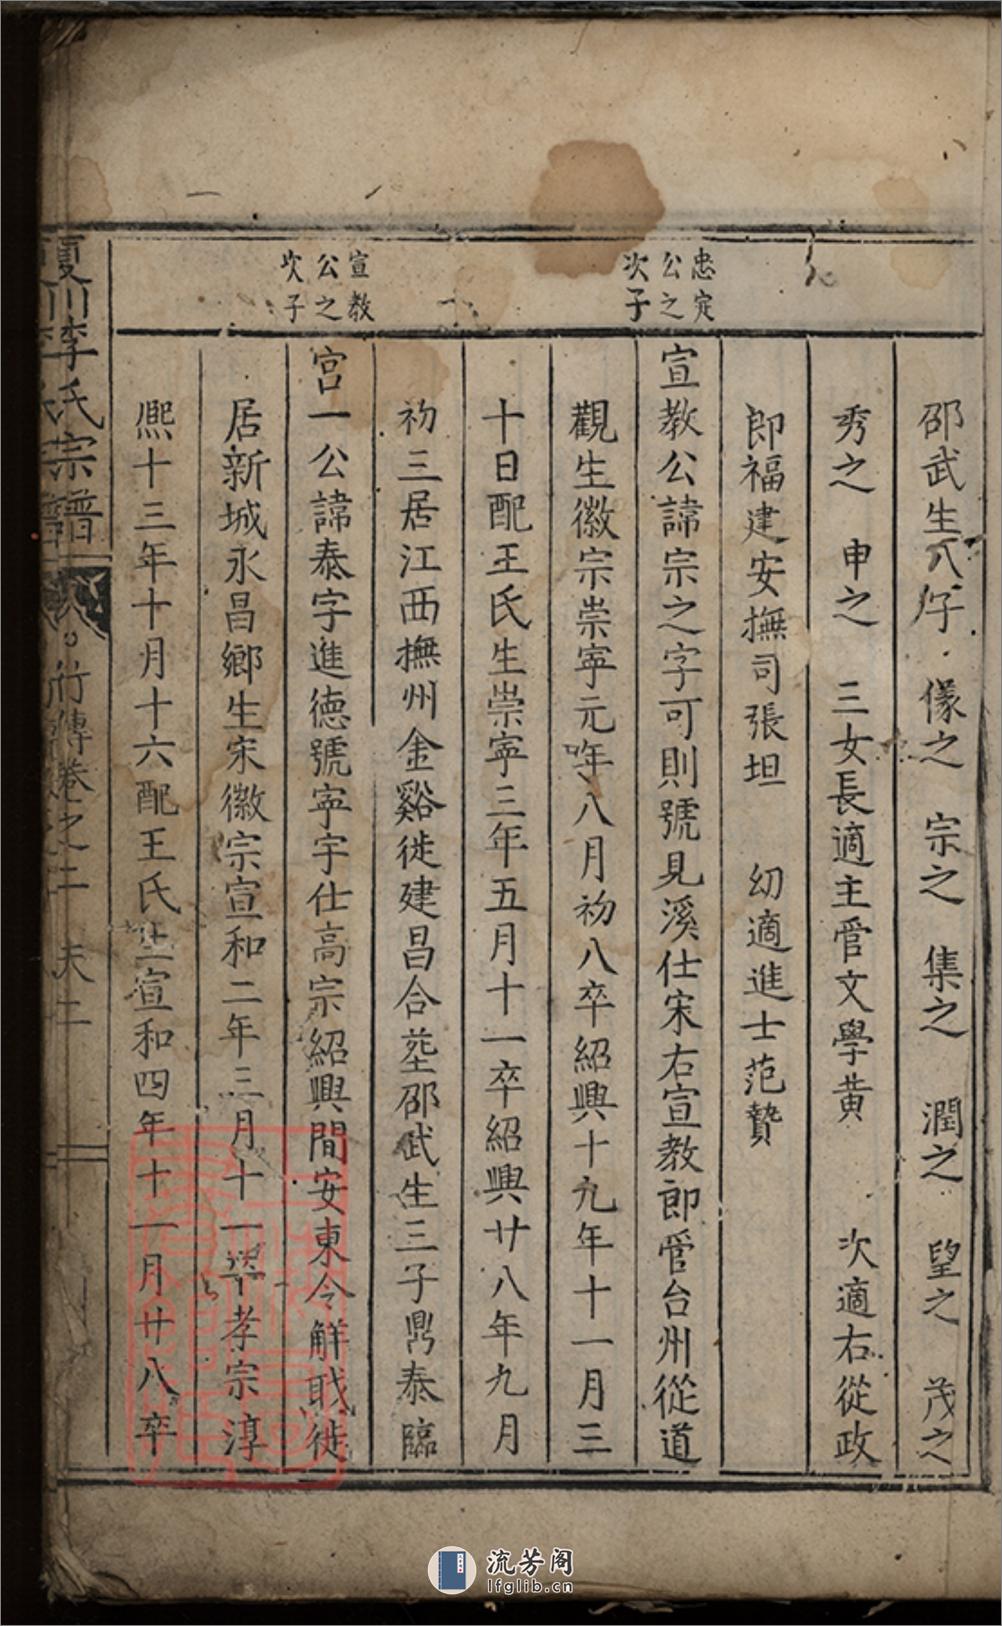 忠定公之次子
宣教公之次子
邵武生八子 儯之 宗之 集之 潤之 望之 茂之
秀之 申之 三女長適主管文學黄 次適右從政
郎福建安撫司張坦 幼適進士范贄
宣教公諱宗之字可則號見溪仕宋右宣教郎管台州從道
觀生徽宗崇寧元年八月初八卒紹興十九年十一月三
十日配王氏生崇寧三年五月十一卒紹興廿八年九月
初三居江西撫州金谿徙建昌合塟邵武生三子鼎泰臨
宫一公諱泰字進德號寧宇仕高宗紹興間安東令解戝徙
居新城永昌鄉生宋徽宗宣和二年三月十一卒孝宗淳
熈十三年十月十六配王氏生宣和四年十一月廿八卒
李氏宗譜
行傳卷之二 天二
流芳阁
lfglib.cn